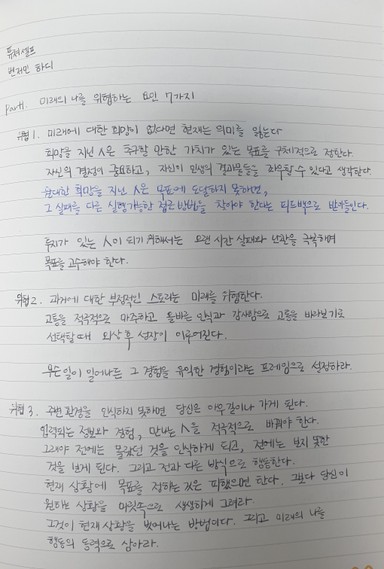 퓨처셀프
벤저민 하디
Part1. 미래의 나를 위협하는 요인 7가지
위협1. 미래에 대한 희망이 없다면 현재는 의미를 잃는다
희망을 지닌 사람은 추구할 만한 가치가 있는 목표를 구체적으로 정한다.
자신의 결정이 중요하고, 자신이 인생의 결과물들을 좌우할 수 있다고 생각한다
원대한 희망을 지닌 사람은 목표에 도달하지 못하면,
그 실패를 다른 실행가능한 접근 방법을 찾아야 한다는 피드백으로 받아들인다.
투지가 있는 사람이 되기 위해서는 오랜 시간 실패와 난관을 극복하며
목표를 고수해야 한다.
위협2. 과거에 대한 부정적인 스토리는 미래를 위협한다.
고통을 적극적으로 마주하고 올바른 인식과 감사함으로 고통을 바라보기로
선택할 때 외상 후 성장이 이루어진다.
무슨 일이 일어나든 그 경험을 유익한 경험이라는 프레임으로 설정하라.
위협3. 주변 환경을 인식하지 못하면 당신은 아무 길이나 가게 된다.
입력되는 정보와 경험, 만나는 사람을 적극적으로 바꿔야 한다.
그래야 전에는 몰랐던 것을 인식하게 되고, 전에는 보지 못한
것을 보게 된다. 그리고 전과 다른 방식으로 행동한다.
현재 상황에 목표를 정하는 것은 피했으면 한다. 그보다 당신이
원하는 상황을 머릿속으로 생생하게 그려라.
그것이 현재 상황을 벗어나는 방법이다. 그리고 미래의 나를
행동의 동력으로 삼아라.